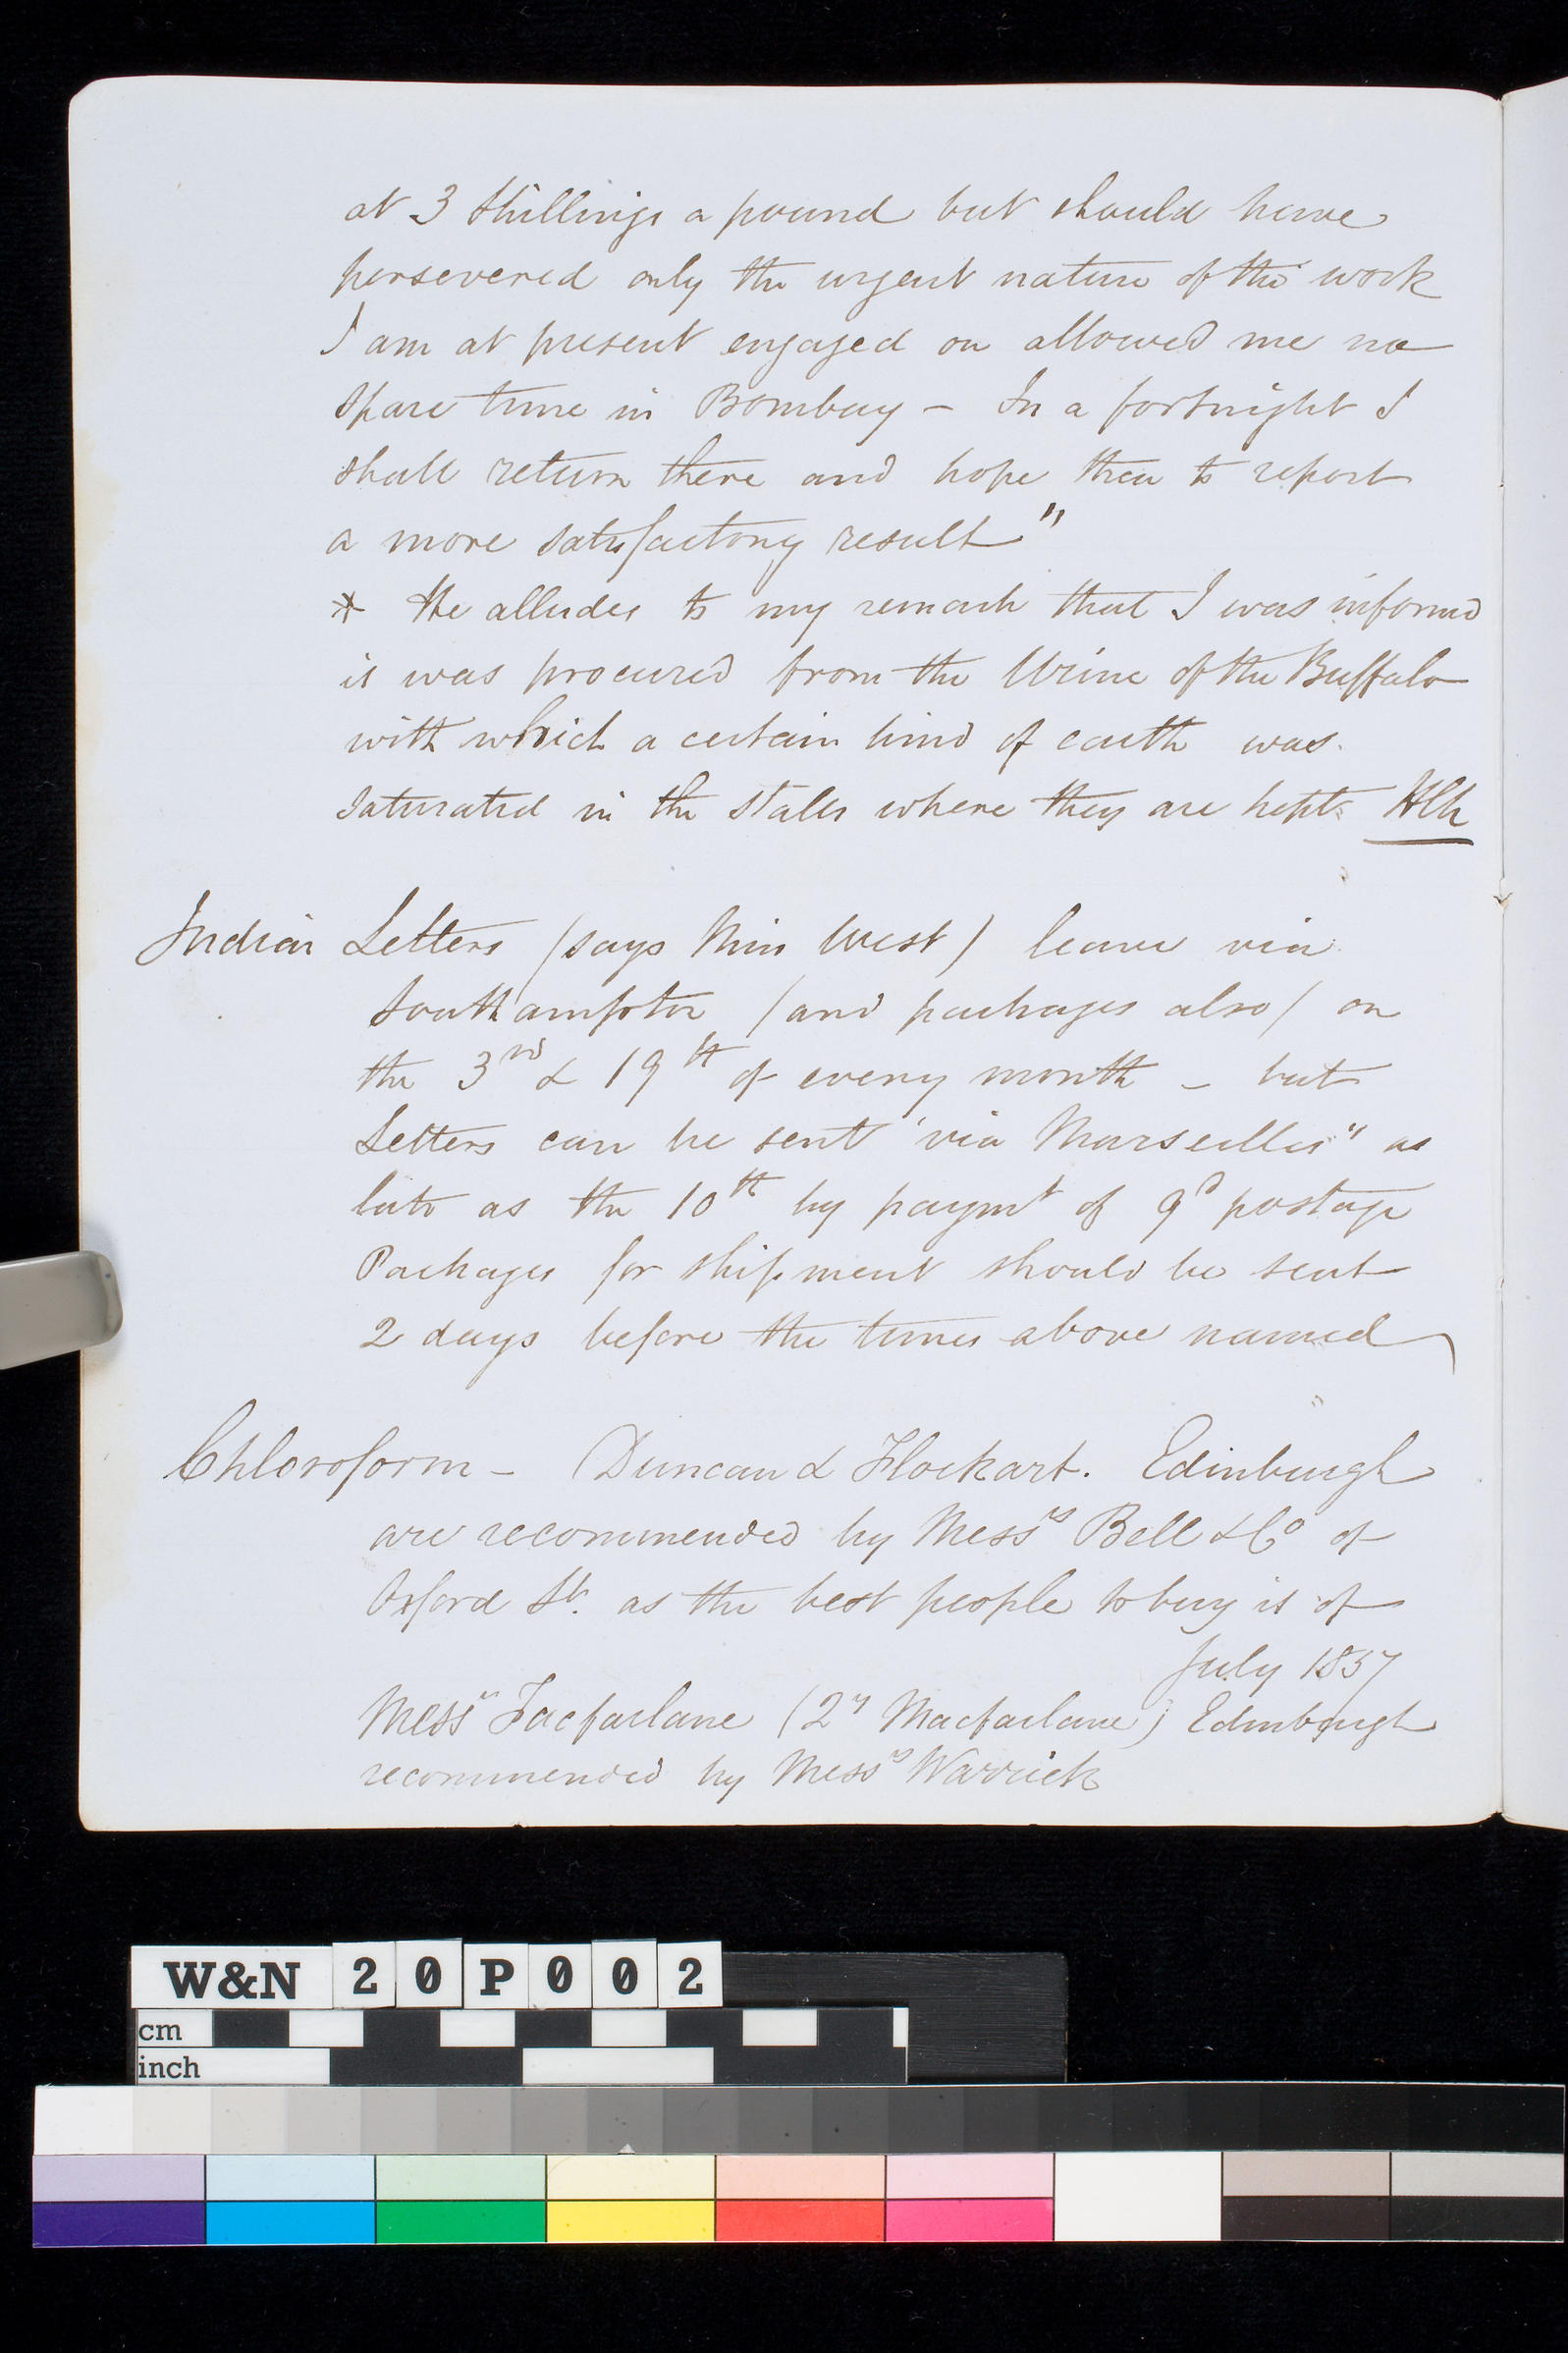 at 3 Shillings a pound but should have
persevered only the urgent nature of the work
I am at present engaged on allowed me no
spare time in Bombay - In a fortnight I
shall return there and hope then to report
a more satisfactory result"
* He alludes to my remark that I was informed
it was procured from the Urine of the Buffalo
with which a certain kind of earth was
saturated in the stalls where they are kept
Indian Letters (says Miss West) leave via
Southampton (and packages also) on
the 3rd & 19th of every month - but
Letters can be sent "via Marseilles" as
late as the 10th by paymt of 9d postage
Packages for shipment should be sent
2 days before the times above named
Chloroform - Duncan & Flockart. Edinburgh
are recommended by Messrs Bell & Co of
Oxford St. as the best people to buy it of
July 1857
Messrs Facfarlane (2y Macfarlane) Edinburgh
recommended by Messrs Warrick
W&N 20P002
cm
inch